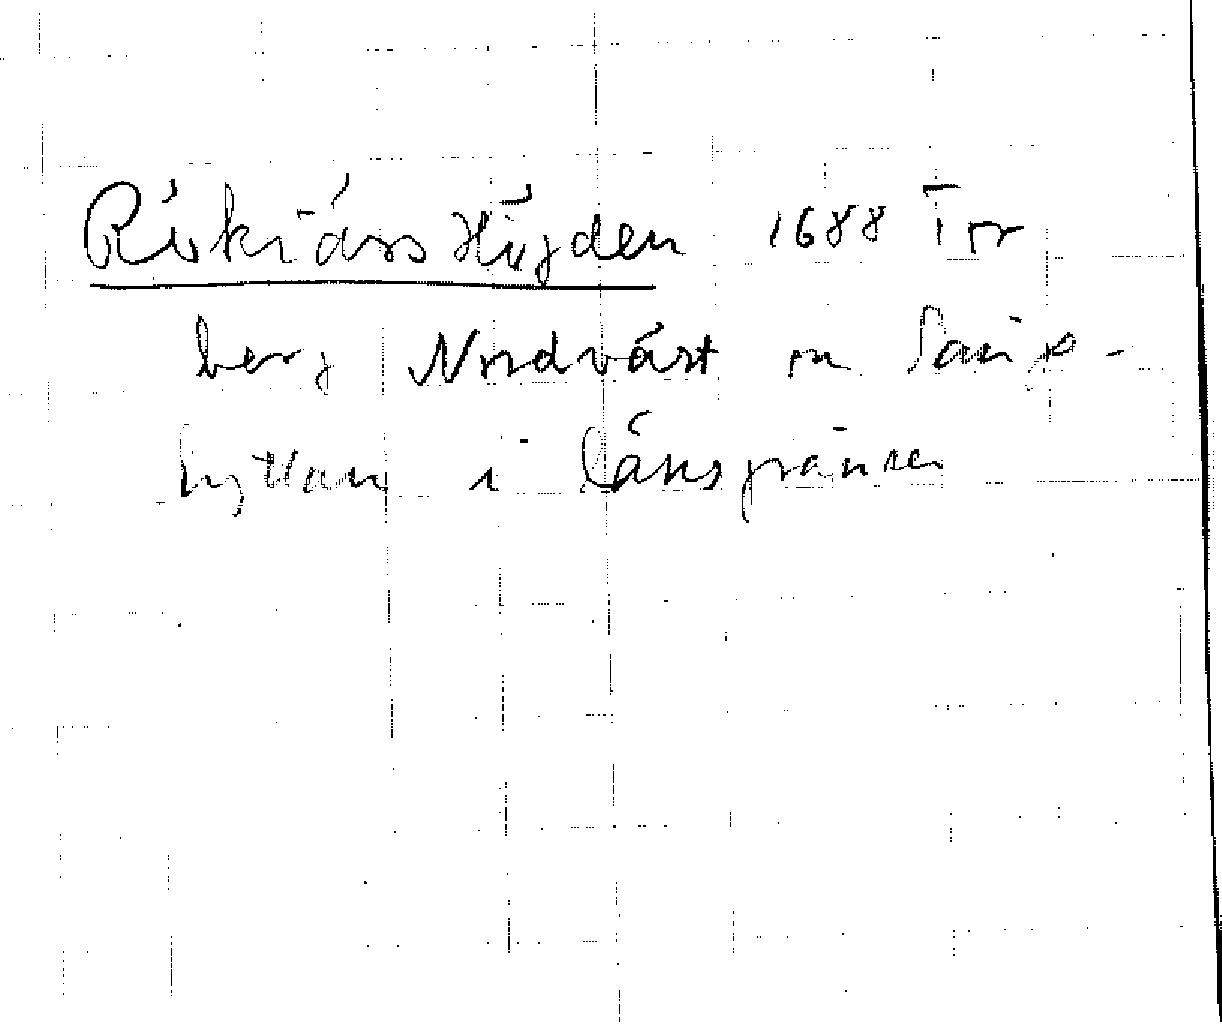 Rökiåss Höjden 1688 Tor
berg Nordväst om
hyttan i länsgränsen